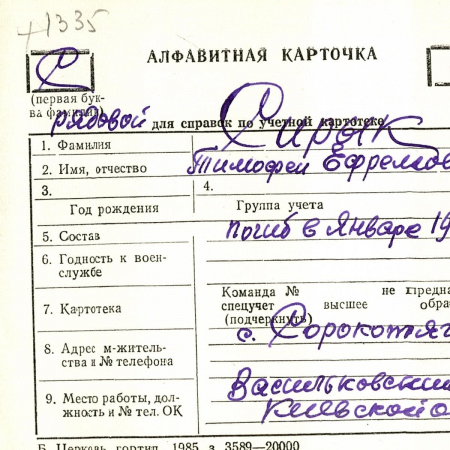 +1335
АЛФАВИТНАЯ КАРТОЧКА
С
(первая бук-
ва фамилии)
рядовой для справок по учетной картотеке
1. Фамилия Сирык
2. Имя, отчество Тимофей Ефремов
3. 4.
Год рождения Группа учета
5. Состав погиб в Январе 19
6. Годность к воен-
службе
Команда № не предна
7. Картотека спецучет высшее обра
(подчеркнуть)
8. Адрес м-житель-
ства и № телефона с. Сорокотяг
9. Место работы, дол-
жность и № тел. ОК Васильковский
Киевской о
Б. Церковь, гортип. 1985 з. 3589—20000